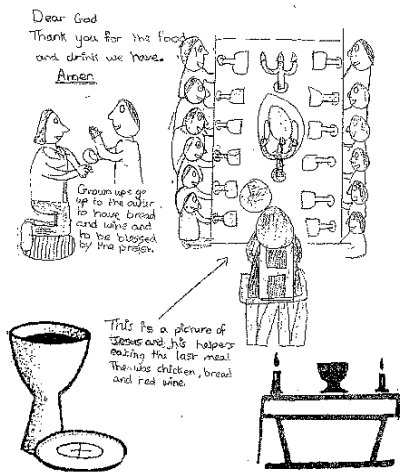 Dear God
Thank you for the food
and drink we have.
Anger
Grown ups go
up to the auter
to have bread
and wine and
to be blessed
by the
This is a picture of
Jesus and his helpers
eating the last meal
was chicken, bread
and red wine.